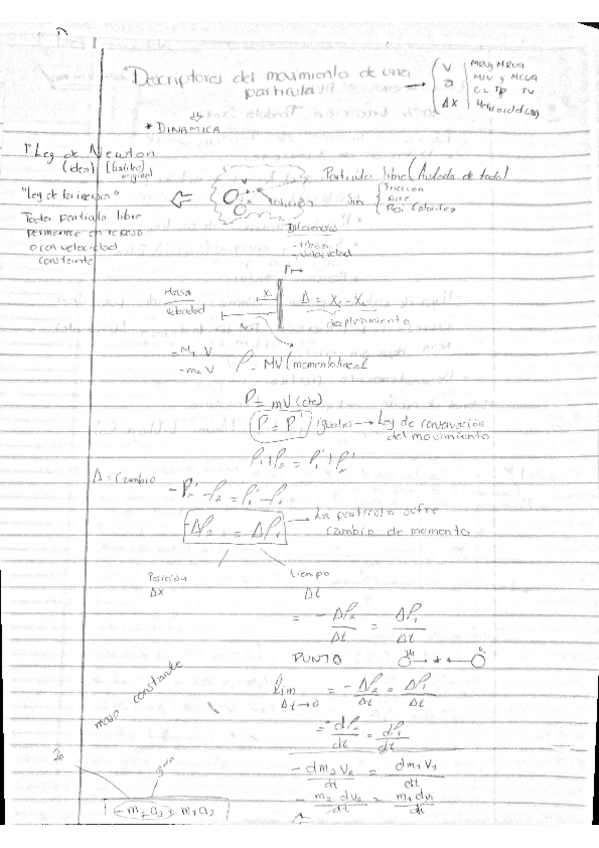 Descriptores del movimiento de una
particula
V
a
ΔX
MRU y MRUA
MCU y MCUA
* DINAMICA
1° Ley de Newton
(idea) [Galileo]
original
"Ley de la inercia"
Toda particula libre
permanece en reposo
o con velocidad
constante
Particula libre (Aislada de todo)
Sin
Friccion
Aire
Diferencias
- Masa
- Velocidad
Masa
Velocidad
Δ = X₁ - X₀
desplazamiento
= M₁ V
- m₂ V
P = MV (momento lineal
P = mV (cte)
P = P' iguales → Ley de conservación
del movimiento
P₁ + P₂ = P₁' + P₂'
Δ = Cambio
- P₂' - P₂ = P₁' - P₁
- ΔP₂ = ΔP₁ → La particula sufre
cambio de momento
Posición
ΔX
tiempo
Δt
= - ΔP₂/Δt = ΔP₁/Δt
PUNTO
masa constante
lim Δt→0 = - ΔP₂/Δt = ΔP₁/Δt
= - dP₂/dt = dP₁/dt
- dm₂ V₂/dt = dm₁ V₁/dt
- m₂ dv₂/dt = m₁ dv₁/dt
- m₂ a₂ = m₁ a₂